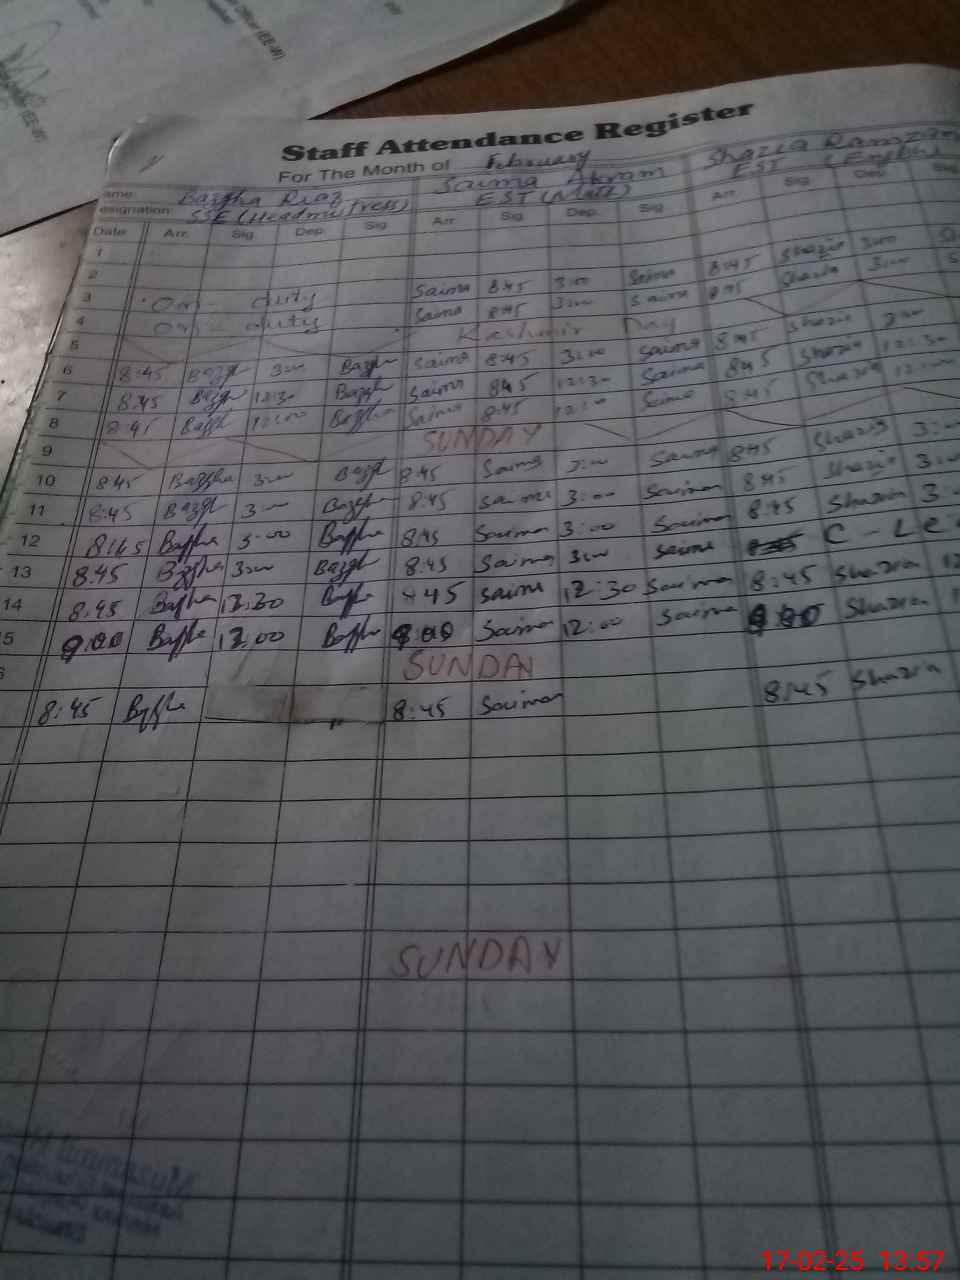 Officer (EE-W)
Staff Attendance Register
For The Month of February
ame Bazgha Riaz Saima Akram Shazia Ramzan
esignation SSE (Headmistress) EST (Math) EST (English
Date Arr. Sig. Dep. Sig. Arr. Sig. Dep. Sig. Arr. Sig. Dep. Sig
1
2
3 On - duty Saima 8:45 3:00 Saima 8:45 Shazia 3:00
4 On - duty Saima 8:45 3:00 Saima 8:45 Shazia 3:00
5 Kashmir Day
6 8:45 Bazgh 3:00 Bazgh Saima 8:45 3:00 Saima 8:45 Shazia
7 8:45 Bazgh 12:30 Bazgha Saima 8:45 12:30 Saima 8:45 Shazia 12:30
8 8:45 Bazgh 12:00 Bazgha Saima 8:45 12:00 Saima 8:45 Shazia 12:00
9 SUNDAY
10 8:45 Bazgha 3:00 Bazgh 8:45 Saima 3:00 Saima 8:45 Shazia 3:00
11 8:45 Bazgh 3:00 Bazgha 8:45 Saima 3:00 Saima 8:45 Shazia 3:00
12 8:45 Bazgha 3:00 Bazgha 8:45 Saima 3:00 Saima 8:45 Shazia 3:
13 8:45 Bazgha 3:00 Bazgh 8:45 Saima 3:00 Saima C - Le
14 8:45 Bazgha 12:30 Bazgha 8:45 Saima 12:30 Saima 8:45 Shazia 12
5 9:00 Bazgha 12:00 Bazgha 9:00 Saima 12:00 Saima 9:00 Shazia
6 SUNDAY
8:45 Bazgha 8:45 Saima 8:45 Shazia
SUNDAY
17-02-25 13:57